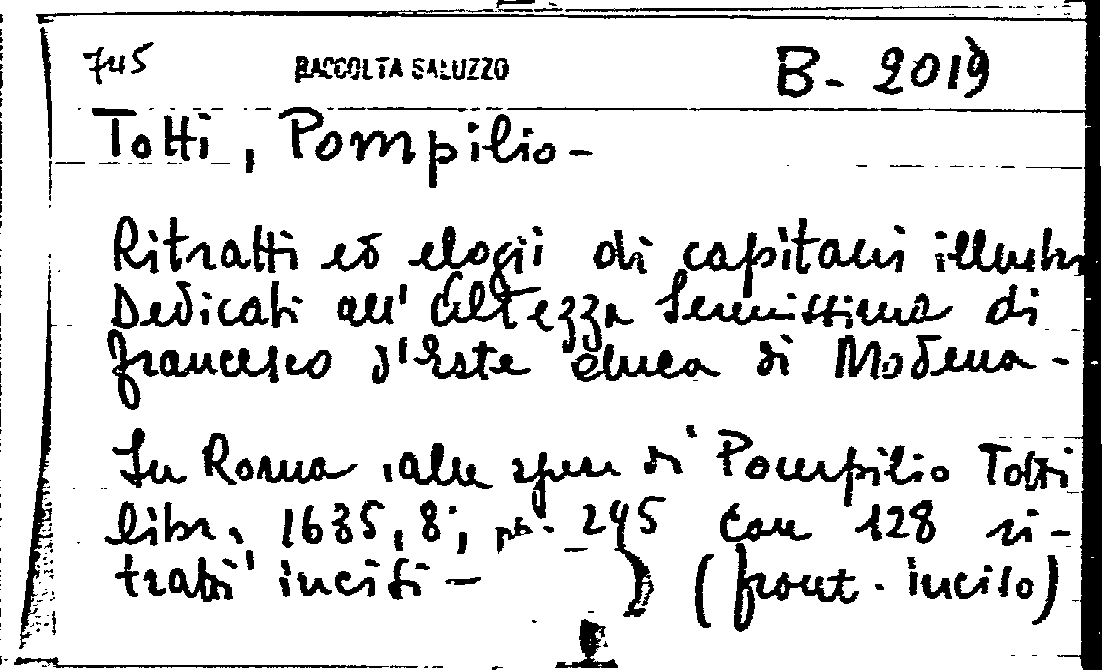 745 RACCOLTA SALUZZO B-2019
Totti, Pompilio-
Ritratti ed elogii di capitani illustri
Dedicati all'Altezza Serenissima di
Francesco d'Este duca di Modena-
In Roma, alle spese di Pompilio Totti
libr. 1635, 8; pp. 245 con 128 ri-
tratti incisi - (front. inciso)